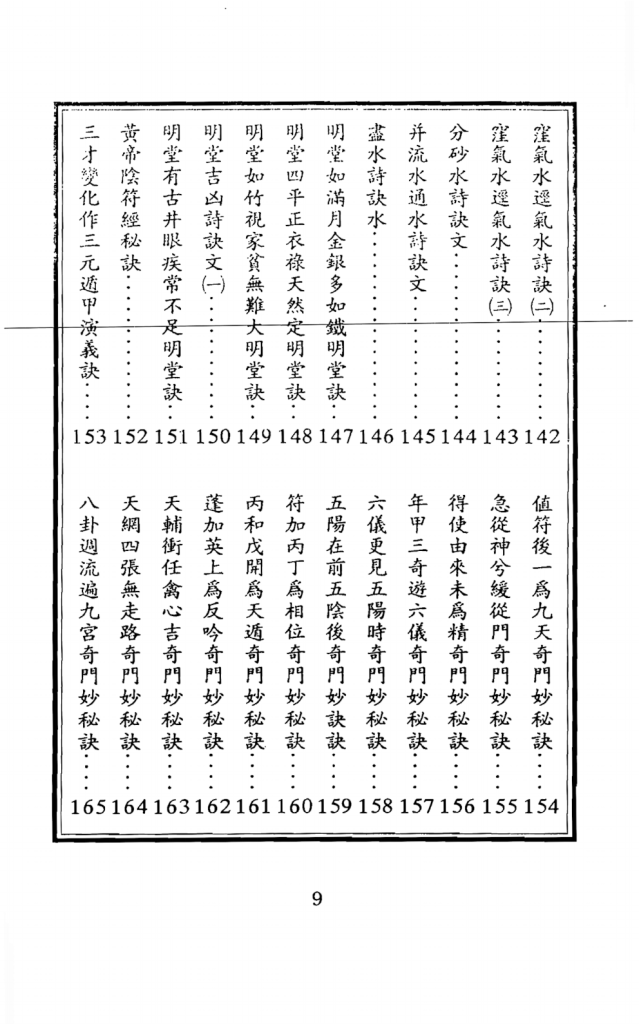 窪氣水遲氣水詩訣㈡············142
窪氣水遲氣水詩訣㈢············143
分砂水詩訣文············144
并流水通水詩訣文············145
盡水詩訣水············146
明堂如滿月金銀多如鐵明堂訣······147
明堂四平正衣祿天然定明堂訣······148
明堂如竹視家貧無難大明堂訣······149
明堂吉凶詩訣文㈠············150
明堂有古井眼疾常不足明堂訣······151
黃帝陰符經秘訣············152
三才變化作三元遁甲演義訣······153
值符後一為九天奇門妙秘訣······154
急從神兮緩從門奇門妙秘訣······155
得使由來未為精奇門妙秘訣······156
年甲三奇遊六儀奇門妙秘訣······157
六儀更見五陽時奇門妙秘訣······158
五陽在前五陰後奇門妙訣訣······159
符加丙丁為相位奇門妙秘訣······160
丙和戊開為天遁奇門妙秘訣······161
蓬加英上為反吟奇門妙秘訣······162
天輔衝任禽心吉奇門妙秘訣······163
天網四張無走路奇門妙秘訣······164
八卦週流遍九宮奇門妙秘訣······165
9